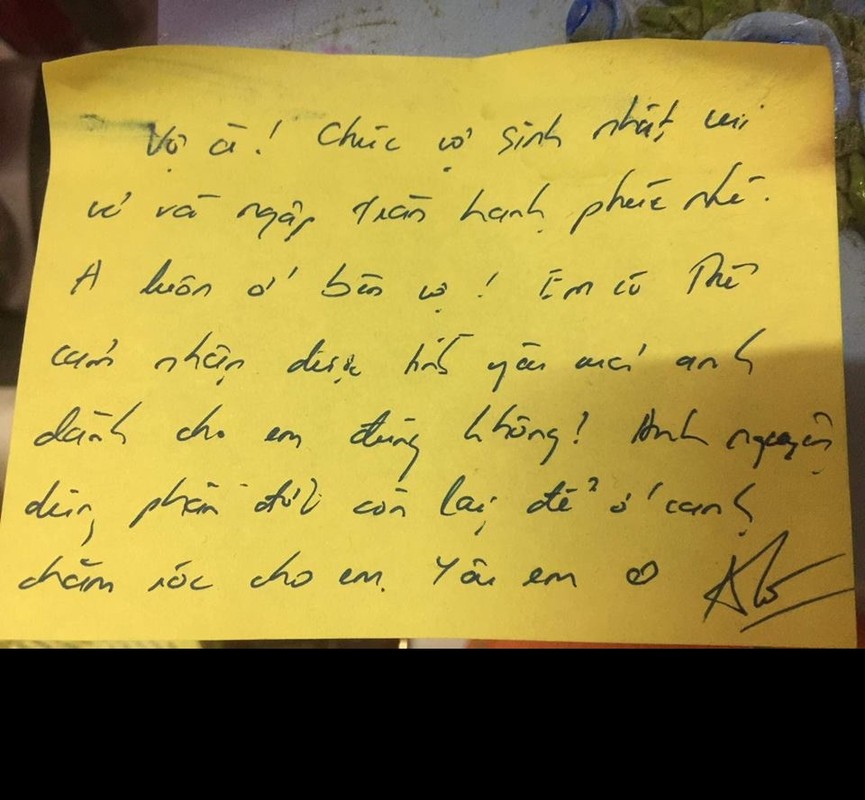 Vợ à! Chúc vợ sinh nhật vui
vẻ và ngập tràn hạnh phúc nhé.
A luôn ở bên vợ! Em có thể
cảm nhận được tình yêu mà anh
dành cho em đúng không! Anh nguyện
dùng phần đời còn lại để ở cạnh
chăm sóc cho em. Yêu em